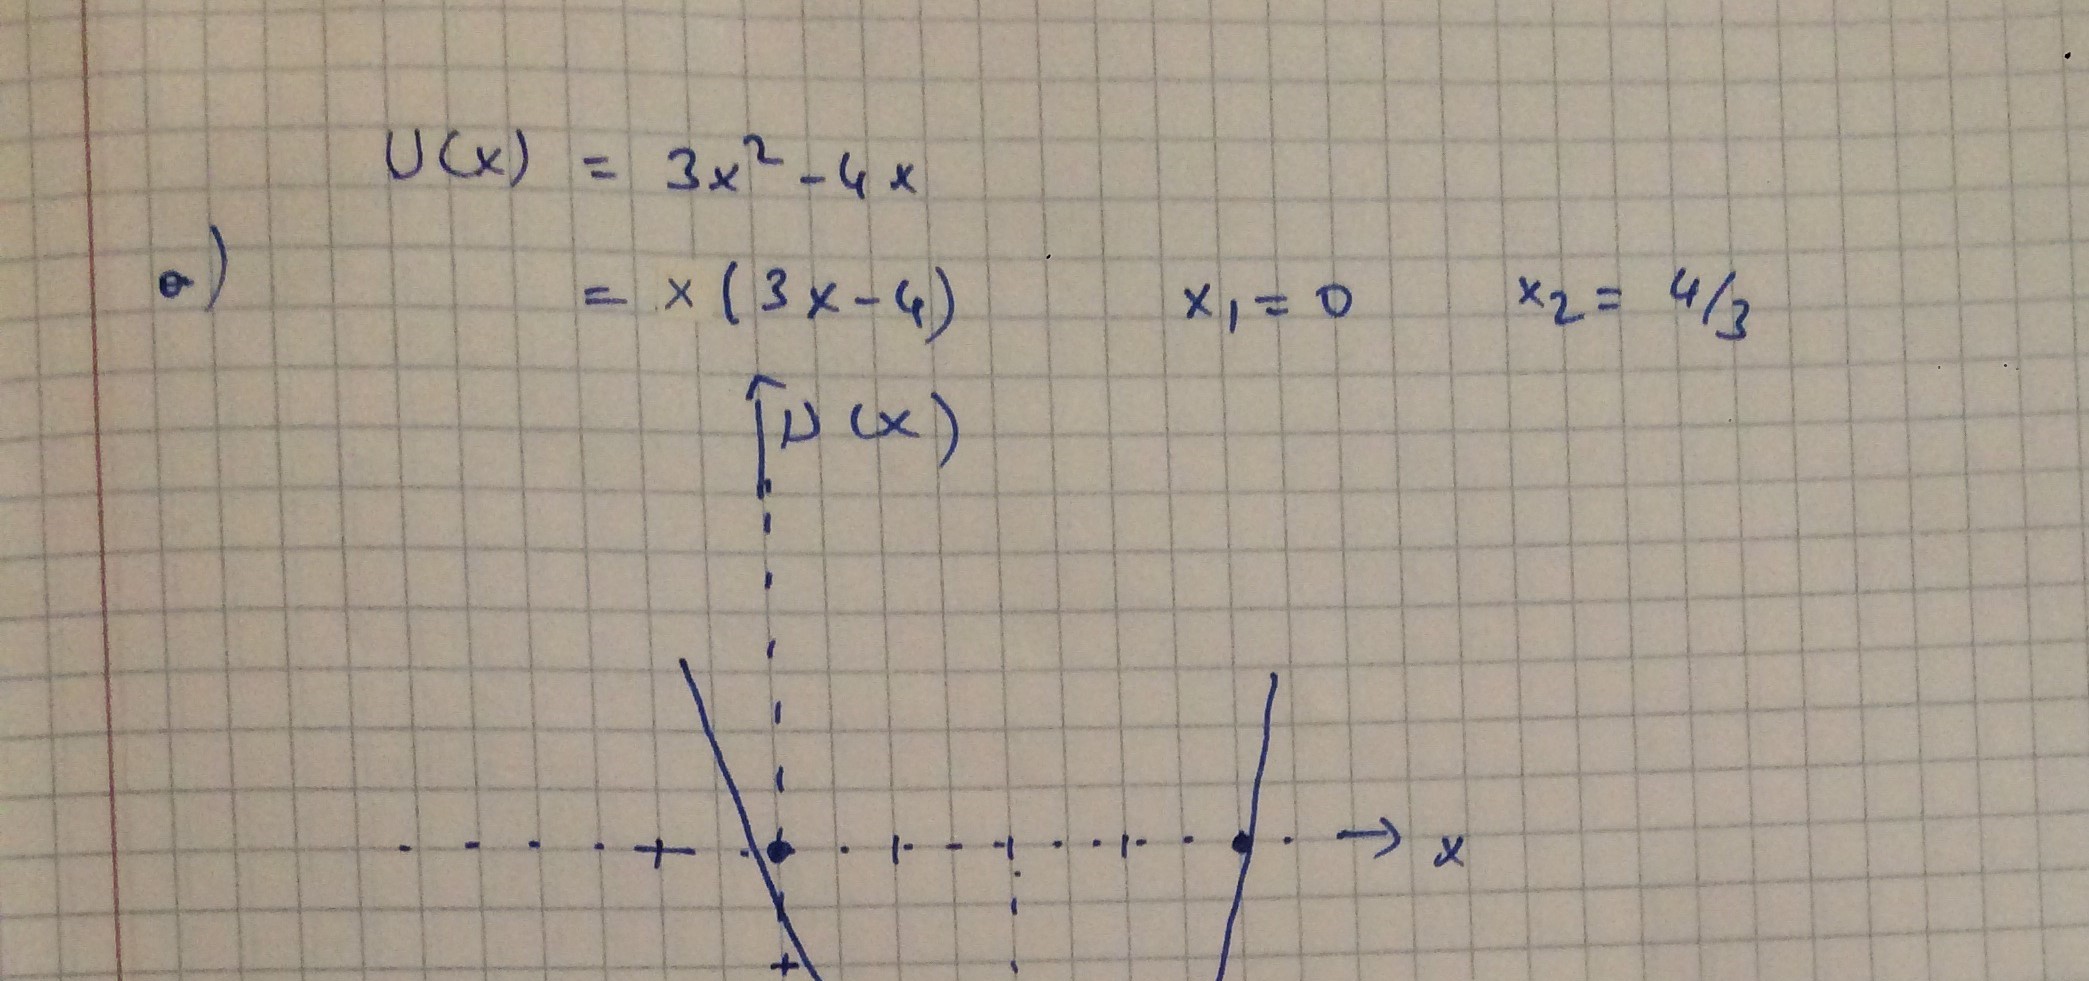 U(x) = 3x² - 4x
a) = x(3x-4) x₁ = 0 x₂ = 4/3
U(x)
x